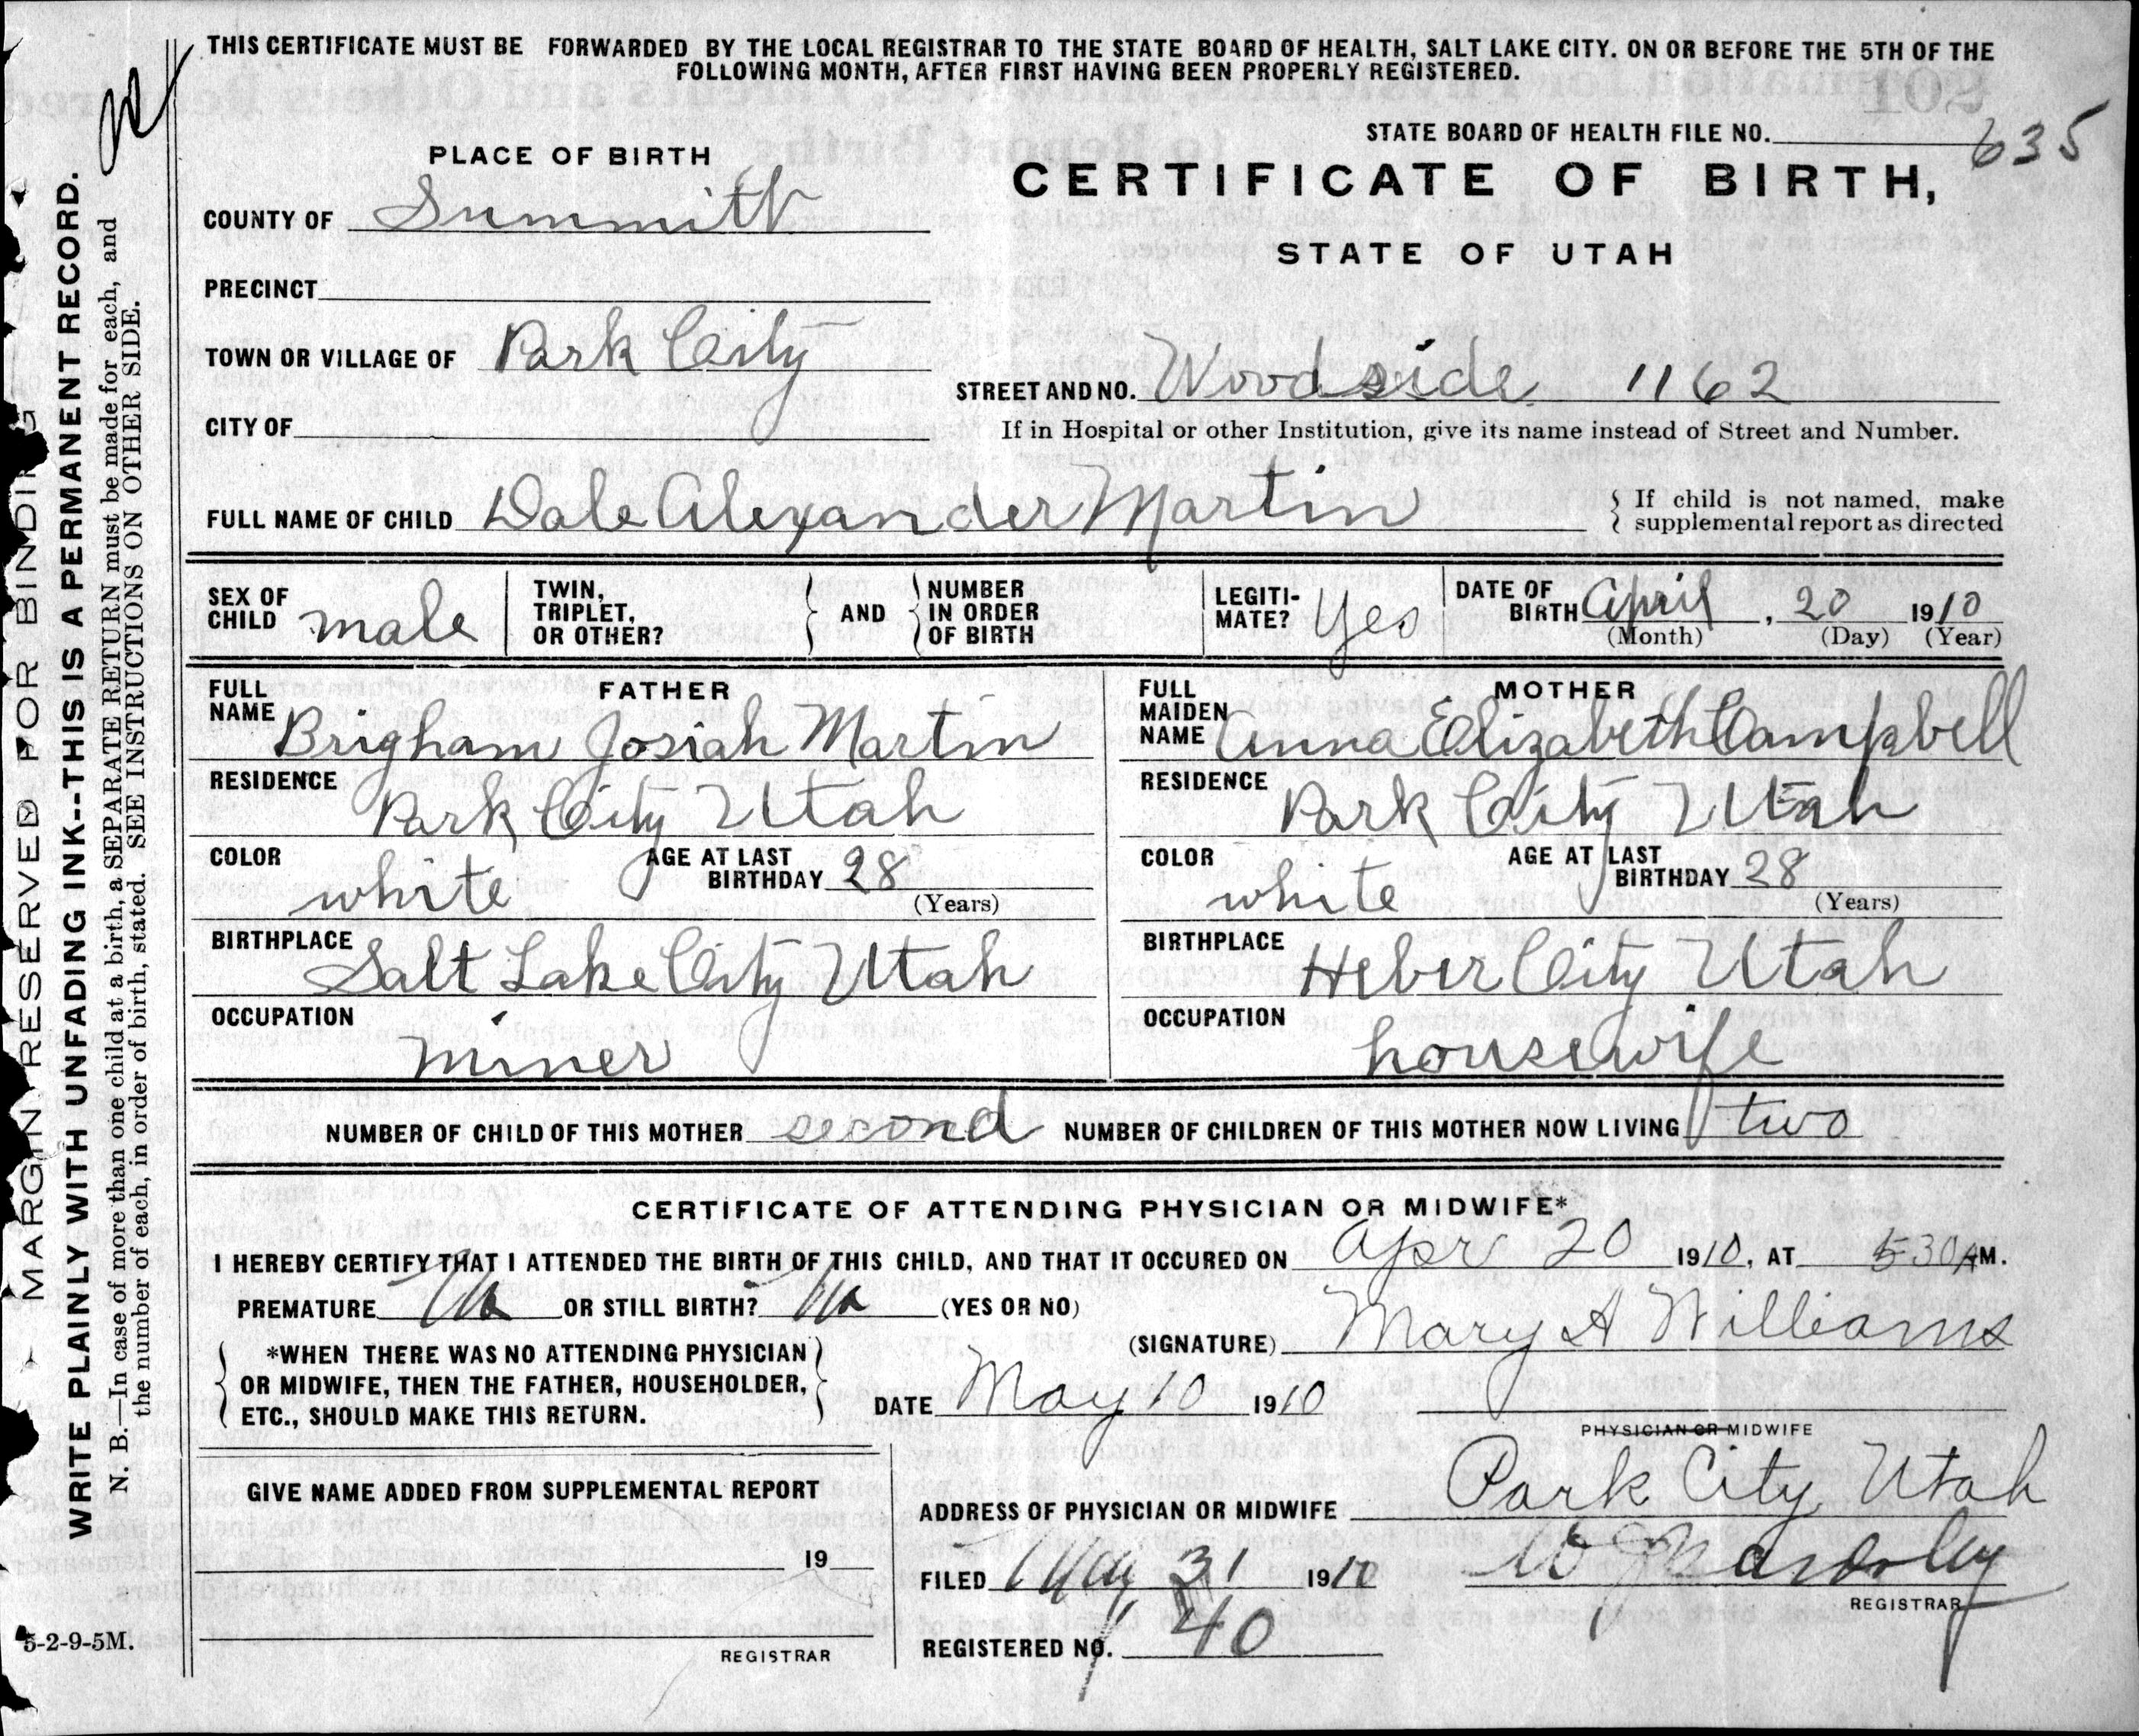 THIS CERTIFICATE MUST BE FORWARDED BY THE LOCAL REGISTRAR TO THE STATE BOARD OF HEALTH, SALT LAKE CITY. ON OR BEFORE THE 5TH OF THE
FOLLOWING MONTH, AFTER FIRST HAVING BEEN PROPERLY REGISTERED.
STATE BOARD OF HEALTH FILE NO. 635
PLACE OF BIRTH
CERTIFICATE OF BIRTH,
COUNTY OF Summitt
STATE OF UTAH
PRECINCT
TOWN OR VILLAGE OF Park City
STREET AND NO. Woodside 1162
CITY OF
If in Hospital or other Institution, give its name instead of Street and Number.
FULL NAME OF CHILD Dale Alexander Martin
If child is not named, make
supplemental report as directed
SEX OF CHILD male
TWIN, TRIPLET, OR OTHER?
AND
NUMBER IN ORDER OF BIRTH
LEGITI-MATE? Yes
DATE OF BIRTH April, 20 1910
(Month) (Day) (Year)
FATHER
FULL NAME Brigham Josiah Martin
RESIDENCE Park City Utah
COLOR white
AGE AT LAST BIRTHDAY 28
(Years)
BIRTHPLACE Salt Lake City Utah
OCCUPATION miner
MOTHER
FULL MAIDEN NAME Anna Elizabeth Campbell
RESIDENCE Park City Utah
COLOR white
AGE AT LAST BIRTHDAY 28
(Years)
BIRTHPLACE Heber City Utah
OCCUPATION housewife
NUMBER OF CHILD OF THIS MOTHER second NUMBER OF CHILDREN OF THIS MOTHER NOW LIVING two
CERTIFICATE OF ATTENDING PHYSICIAN OR MIDWIFE*
I HEREBY CERTIFY THAT I ATTENDED THE BIRTH OF THIS CHILD, AND THAT IT OCCURED ON Apr 20 1910, AT 5 30 AM.
PREMATURE No OR STILL BIRTH? No (YES OR NO)
(SIGNATURE) Mary A Williams
*WHEN THERE WAS NO ATTENDING PHYSICIAN
OR MIDWIFE, THEN THE FATHER, HOUSEHOLDER,
ETC., SHOULD MAKE THIS RETURN.
DATE May 10 1910
PHYSICIAN OR MIDWIFE
GIVE NAME ADDED FROM SUPPLEMENTAL REPORT
19
REGISTRAR
ADDRESS OF PHYSICIAN OR MIDWIFE Park City Utah
FILED May 31 1910
REGISTRAR
REGISTERED NO. 40
5-2-9-5M.
MARGIN RESERVED FOR BINDING
WRITE PLAINLY WITH UNFADING INK--THIS IS A PERMANENT RECORD.
N. B.—In case of more than one child at a birth, a SEPARATE RETURN must be made for each, and
the number of each, in order of birth, stated. SEE INSTRUCTIONS ON OTHER SIDE.